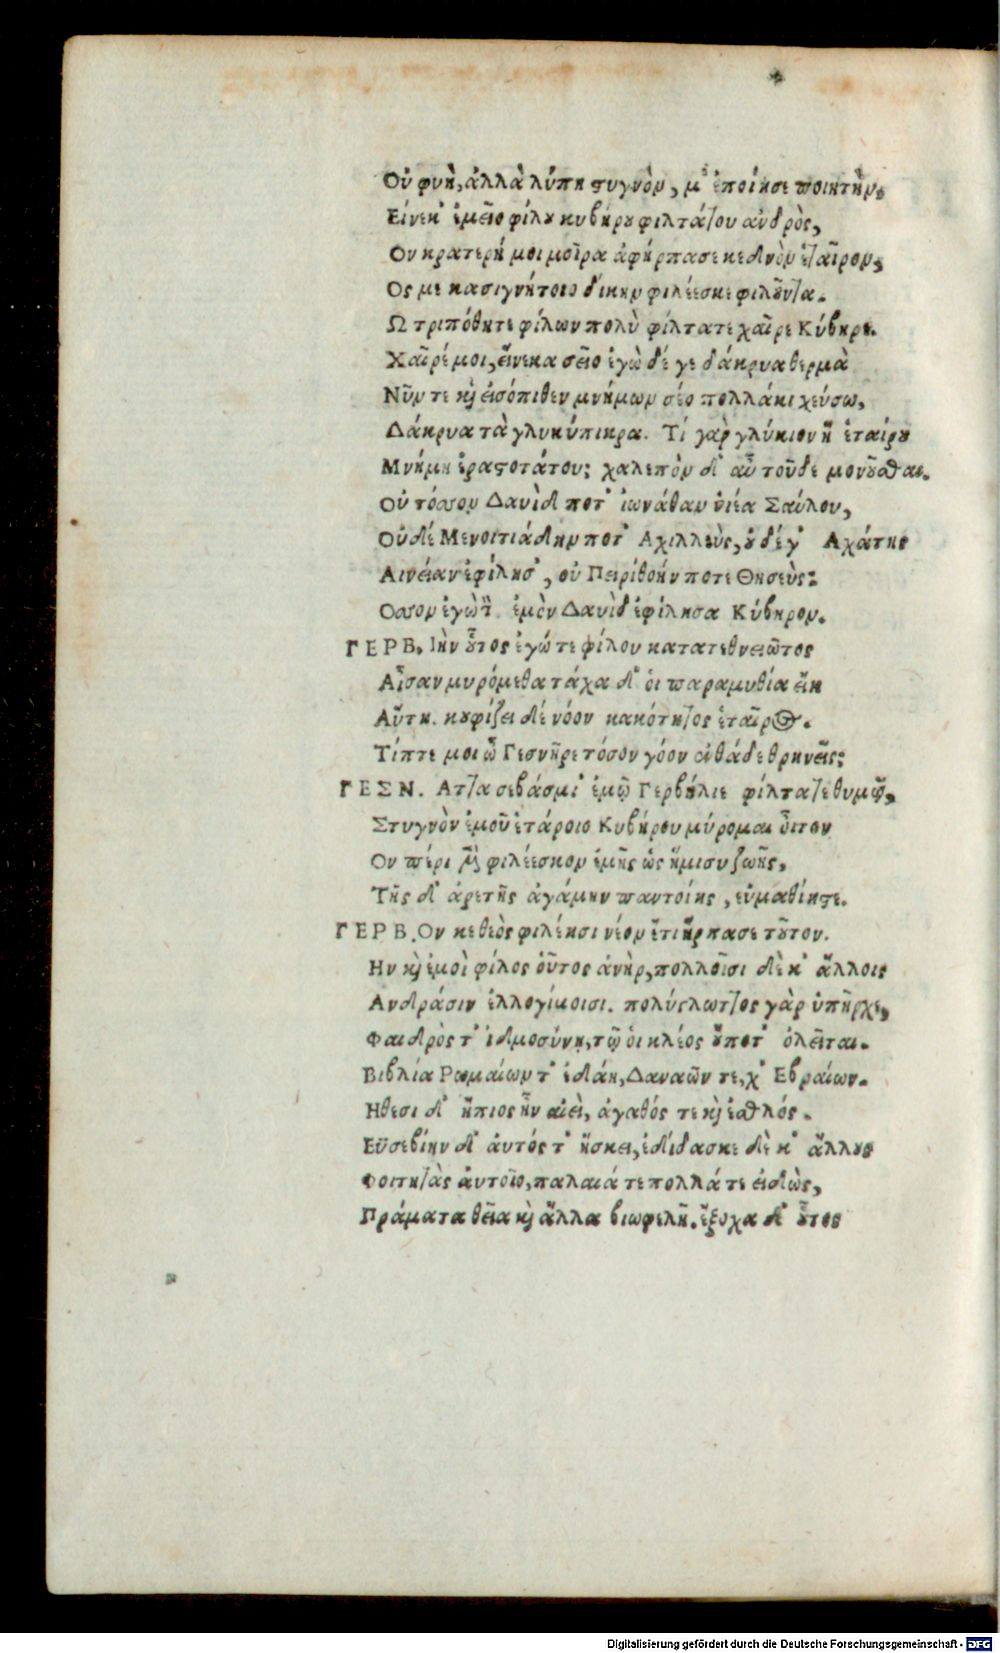 Οὐ φυὴ, ἀλλὰ λύπη στυγνὸν, μ' ἐποίησε ποιητὴν,
Εἵνεκ' ἐμεῖο φίλου κυβήρου φιλτάτου ἀνδρὸς,
Ον κρατερή μοι μοῖρα ἀφήρπασε κεδνὸν ἑταῖρον,
Ος με κασιγνήτοιο δίκην φιλέεσκε φιλοῦντα.
Ω τριπόθητε φίλων πολὺ φίλτατε χαῖρε Κύβηρε.
Χαῖρέ μοι, εἵνεκα σεῖο ἐγὼ δέ γε δάκρυα θερμὰ
Νῦν τε καὶ εἰσόπιθεν μνήμων σέο πολλάκι χεύσω,
Δάκρυα τὰ γλυκύπικρα. Τί γὰρ γλύκιον ἢ ἑταίρου
Μνήμη ἐραστοτάτου; χαλεπὸν δ' αὖ τοῦδε μονοῦσθαι.
Οὐ τόσσον Δαυὶδ ποτ' ἰωνάθαν ὑιέα Σαύλου,
Οὐδέ Μενοιτιάδην ποτ' Αχιλλεὺς, οὐδέ γ' Αχάτης
Αινείαν ἐφίλησ', οὐ Πειρίθοήν ποτε Θησεὺς:
Οσσον ἐγὼ τ̀ ἐμὸν Δαυὶδ ἐφίλησα Κύβηρον.
ΓΕΡΒ. Ιὴν οὗτος ἐγώ τε φίλου κατατεθνειῶτος
Αἶσαν μυρόμεθα τάχα δ' ὁι παραμυθία εἴη
Αὕτη. κουφίζει δέ νόον κακότητος ἑταῖρος.
Τίπτε μοι ὦ Γεσνῆρε τόσον γόον ἐνθάδε θρηνεῖς;
ΓΕΣΝ. Ατ]α σεβάσμι' ἐμῷ Γερβήλιε φίλτατε θυμῷ,
Στυγνὸν ἐμοῦ ἑτάροιο Κυβήρου μύρομαι οἶτον
Ον πέρι φιλέεσκον ἐμῆς ὡς ἥμισυ ζωῆς,
Τῆς δ' ἀρετῆς ἀγάμην παντοίης, εὐμαθίης τε.
ΓΕΡΒ. Ον κε θεὸς φιλέησι νέον ἔτι ἥρπασε τοῦτον.
Ην καὶ ἐμοὶ φίλος οὗτος ἀνὴρ, πολλοῖσι δὲ κ' ἄλλοις
Ανδράσιν ἐλλογίμοισι. πολύγλωττος γὰρ ὑπῆρχε,
Φαιδρὸς τ' ἰδμοσύνῃ, τῷ ὁι κλέος οὔποτ' ὀλεῖται.
Βιβλία Ρωμαίων τ' ἐδάη, Δαναῶν τε, χ' Εβραίων.
Ηθεσι δ' ἤπιος ἦν αἰεὶ, ἀγαθός τε καὶ ἐσθλός.
Εὐσεβίην δ' ἀυτός τ' ἤσκει, ἐδίδασκε δὲ κ' ἄλλους
Φοιτητὰς ἀυτοῖο, παλαιά τε πολλά τε εἰδὼς,
Πράματα θεῖα καὶ ἄλλα βιωφελῆ. ἔξοχα δ' οὗτος
Digitalisierung gefördert durch die Deutsche Forschungsgemeinschaft - DFG